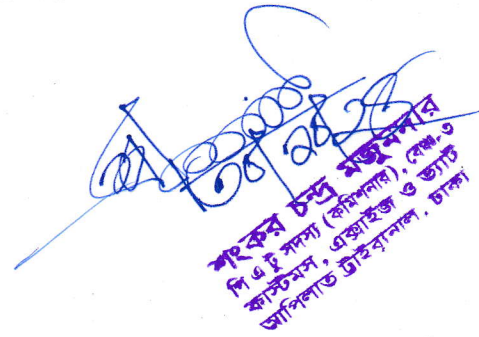 শংকর চন্দ্র মজুমদার
পি এ টু সদস্য (কমিশনার), বেঞ্চ-৩
কাস্টমস, এক্সাইজ ও ভ্যাট
আপিলাত ট্রাইব্যুনাল, ঢাকা